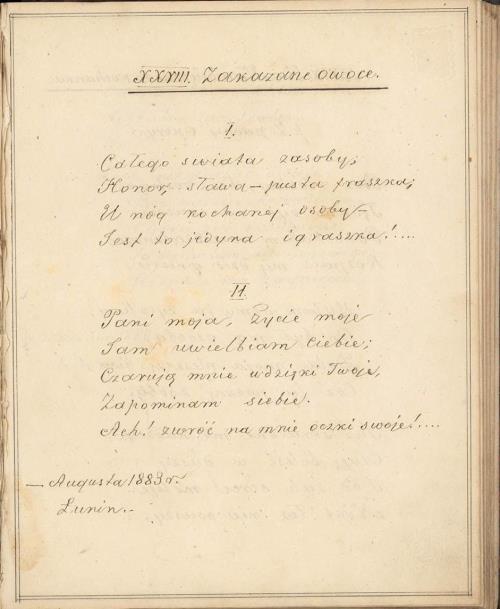 XXVIII. Zakazane owoce.
I.
Całego swiata zasoby;
Honor, sława – pusta fraszka;
U nóg kochanej osoby –
Jest to jedyna igraszka!....
II.
Pani moja, Życie moje
Sam uwielbiam Ciebie;
Czarują mnie wdzięki Twoje,
Zapominam siebie.
Ach! zwróć na mnie oczki swoje!....
– Augusta 1883 r.
Lunin. –